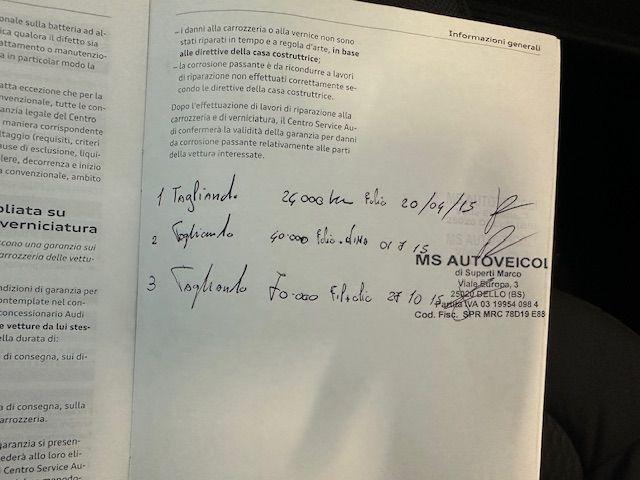 onale sulla batteria ad al-
ica qualora il difetto sia
attamento o manutenzio-
a in particolar modo la
atta eccezione che per la
nvenzionale, tutte le con-
anzia legale del Centro
maniera corrispondente
ltaggio (requisiti, criteri
ause di esclusione, liqui-
lere, decorrenza e inizio
a convenzionale, ambito
pliata su
verniciatura
scono una garanzia sui
arrozzeria delle vettu-
ndizioni di garanzia per
ontemplate nel con-
concessionario Audi
e vetture da lui stes-
ella durata di:
di consegna, sui di-
a di consegna, sulla
arrozzeria.
garanzia si presen-
ederà allo loro eli-
l Centro Service Au-
Informazioni generali
– i danni alla carrozzeria o alla vernice non sono
stati riparati in tempo e a regola d'arte, in base
alle direttive della casa costruttrice;
– la corrosione passante è da ricondurre a lavori
di riparazione non effettuati correttamente se-
condo le direttive della casa costruttrice.
Dopo l'effettuazione di lavori di riparazione alla
carrozzeria e di verniciatura, il Centro Service Au-
di confermerà la validità della garanzia per danni
da corrosione passante relativamente alle parti
della vettura interessate.
1 Tagliando 24000 km 20/04/15
2 Tagliando 40.000 15
3 Tagliando 70.000 27 10 15
MS AUTOVEICOL
di Superti Marco
Viale Europa, 3
25020 DELLO (BS)
Partita IVA 03 19954 098 4
Cod. Fisc. SPR MRC 78D19 E88